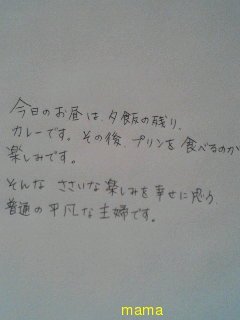 今日のお昼は、夕飯の残り、
カレーです。その後、プリンを食べるのが
楽しみです。
そんな ささいな楽しみを幸せに思う、
普通の平凡な主婦です。
mama